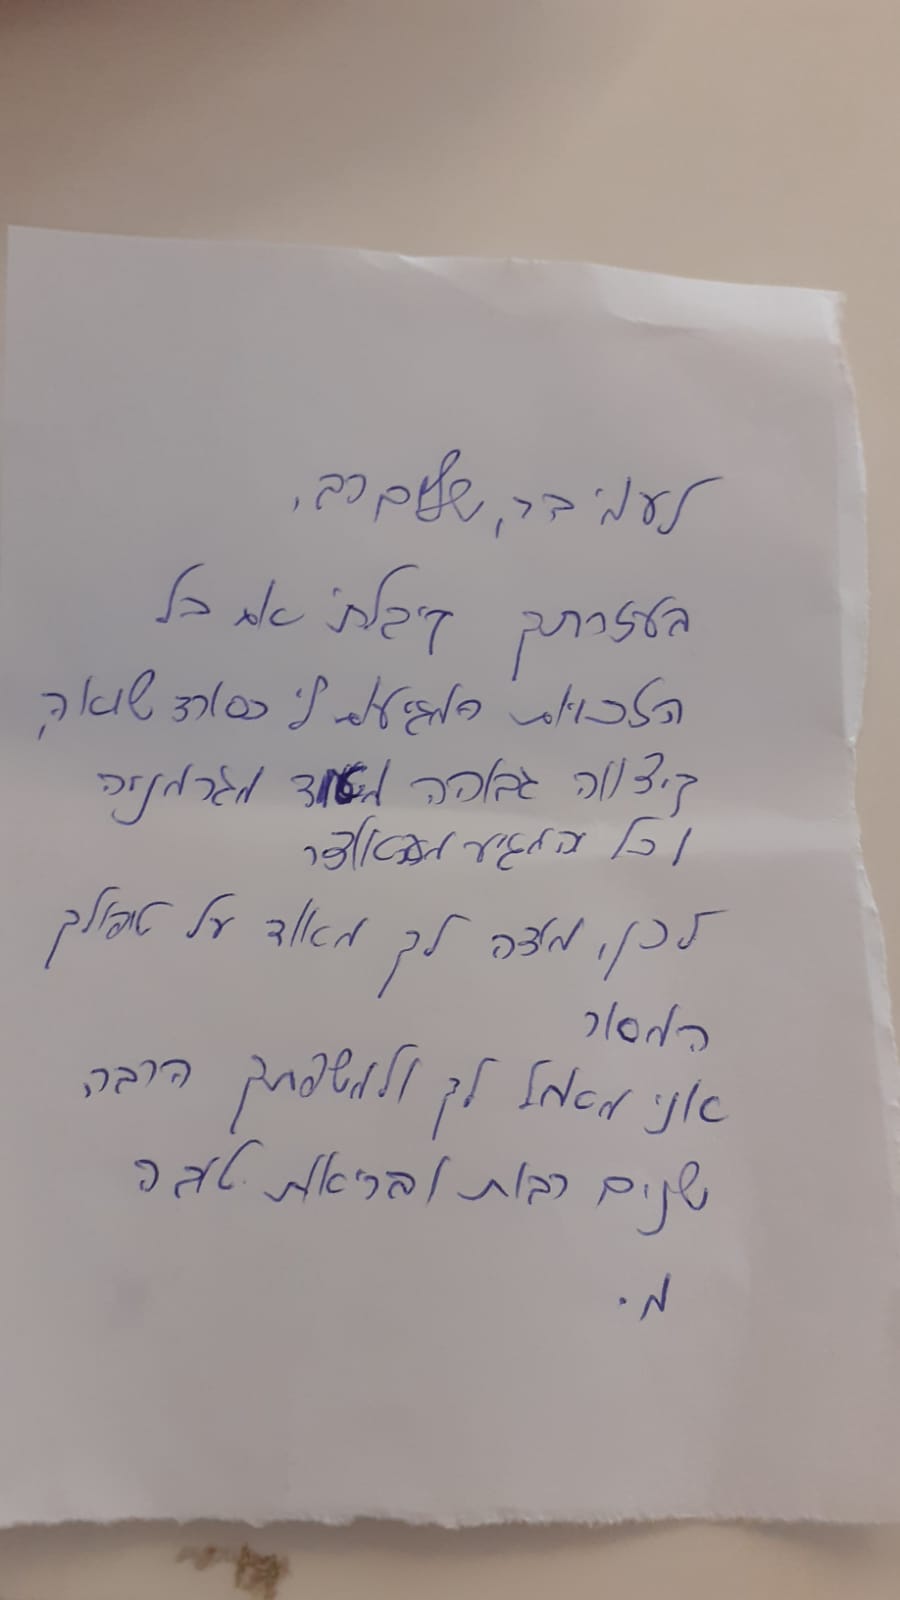 לעמי בר, שלום רב,
בעזרתך קיבלתי את כל
הזכויות המגיעות לי כשורד שואה,
קיצווה גבוהה מאוד מגרמניה
וכל המגיע מהאוצר
לכן, מודה לך מאוד על טיפולך
המסור
אני מאחל לך ולמשפחתך הרבה
שנים רבות ובריאות טובה
מ.